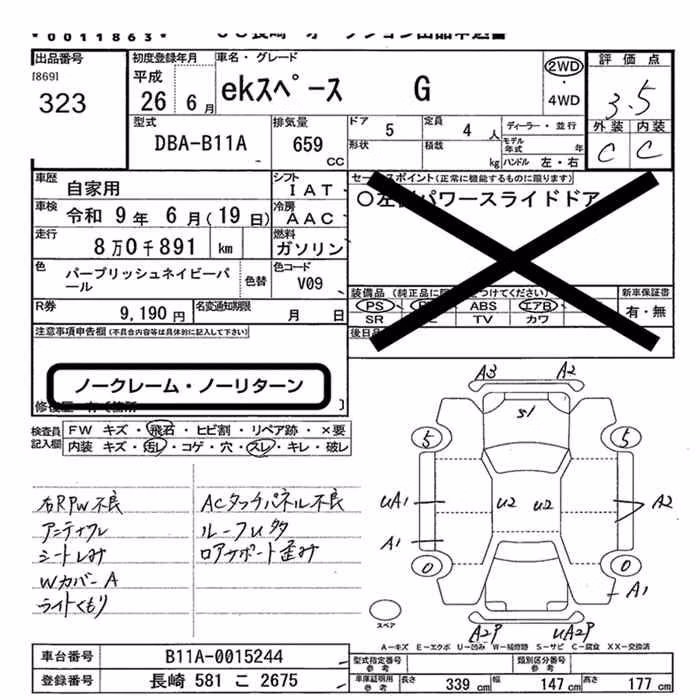 *0011863*
出品番号 初度登録年月 車名・グレード 評価点
[869] 平成 2WD
323 26 6月 ekスペース G ・ 3.5
4WD
型式 排気量 ドア 5 定員 4人 ディーラー・並行 外装 内装
DBA-B11A 659 CC 形状 積載 kg モデル年式 年 ハンドル 左・右 C C
車歴 自家用 シフト IAT セールスポイント(正常に機能するものに限ります)
車検 令和 9年 6月(19日) 冷房 AAC 〇左側パワースライドドア
走行 8万0千891 km 燃料 ガソリン
色 パープリッシュネイビーパール 色替 色コード V09 装備品 新車保証書
R券 9,190円 名変通知期限 月 日 PS ABS エアB 有・無
SR TV カワ
注意事項申告欄(不具合内容等は具体的に記入して下さい)
ノークレーム・ノーリターン
検査員記入欄 FW キズ・飛石・ヒビ割・リペア跡・×要
内装 キズ・汚レ・コゲ・穴・スレ・キレ・破レ
A3 A2
S1
5 5
UA1 U2 U2 A2
A1
0 0
A1
スペア
A2P UA2P
右RPW不良 ACタッチパネル不良
アンテナフレ ルーフU多
シートしみ ロアサポート歪み
WカバーA
ライトくもり
A-キズ E-エクボ U-凹み W-補修跡 S-サビ C-腐食 XX-交換済
車台番号 B11A-0015244 型式指定番号 参考 類別区分番号 参考
登録番号 長崎 581 こ 2675 車庫証明用 参考 長さ 339 cm 幅 147 cm 高さ 177 cm